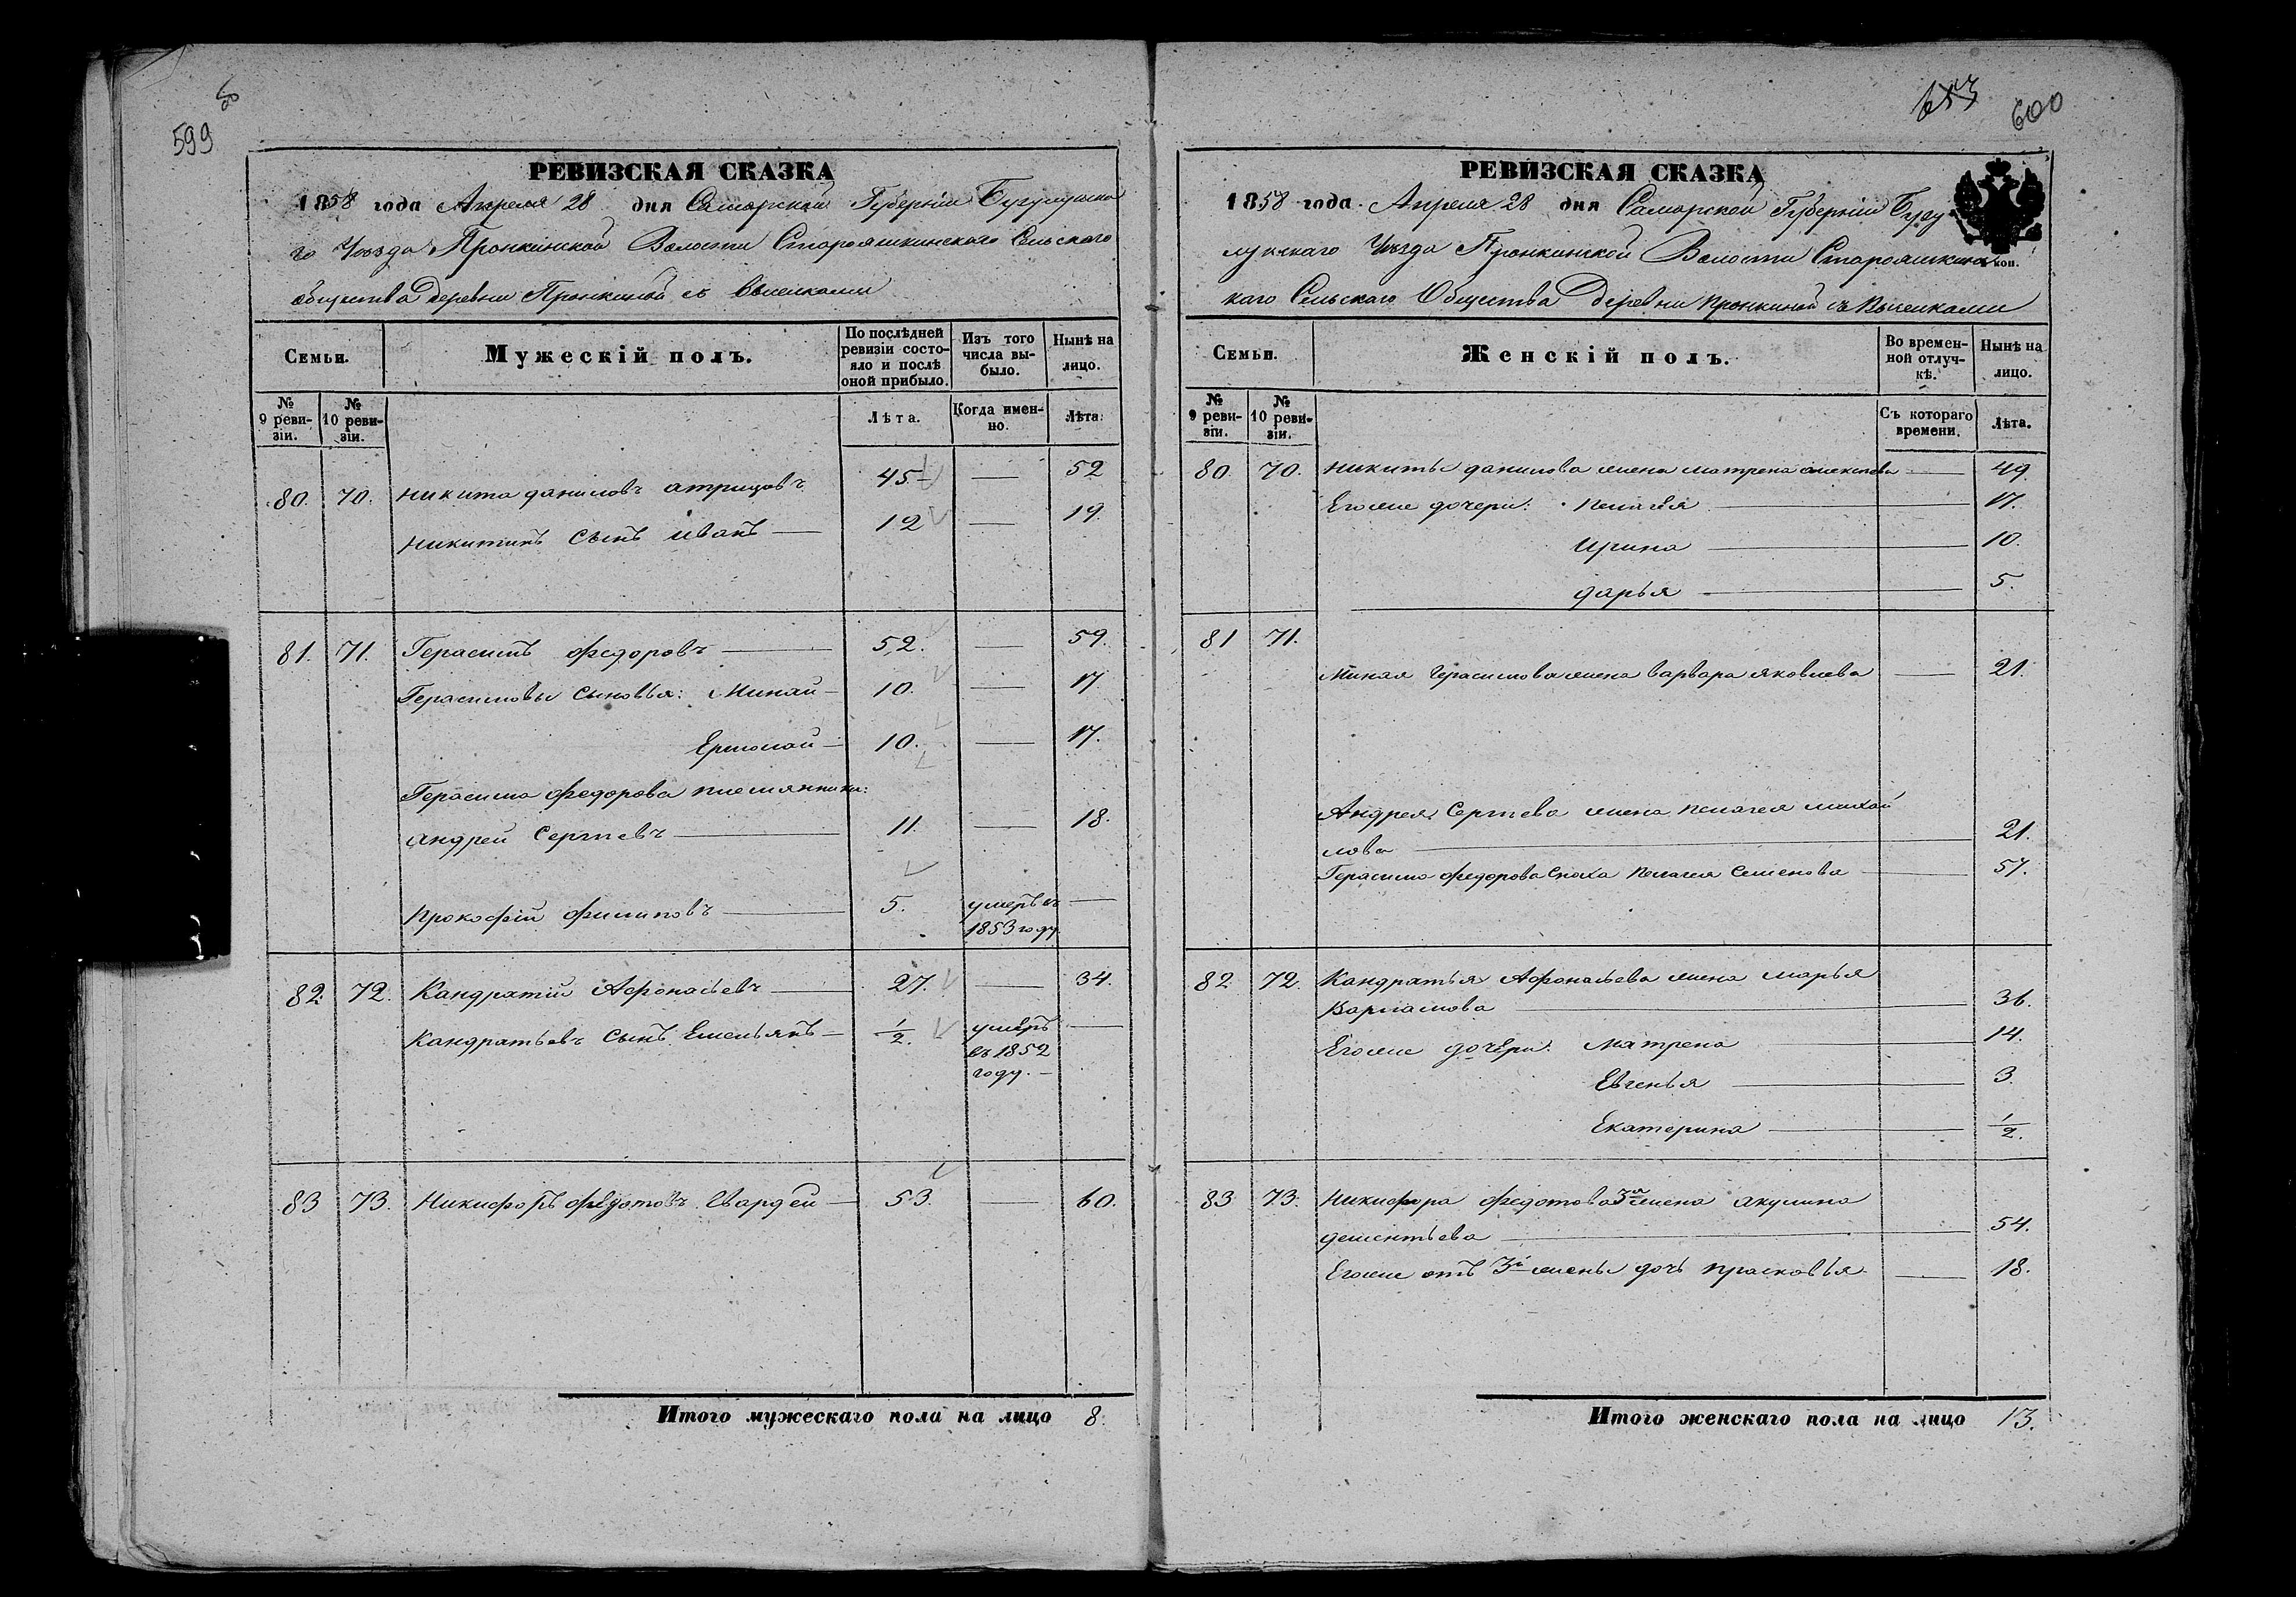 599
РЕВИЗСКАЯ СКАЗКА
1858 года Апреля 28 дня Самарской Губерніи Бугулуска
го Уѣзда Пронкинской Волости Старояшкинскаго Сельскаго
общества Деревни Пронкиной съ выселками
Семьи.
Мужескій полъ.
По послѣдней ревизіи состояло и послѣ оной прибыло.
Изъ того числа выбыло.
Нынѣ на лицо.
№ 9 ревизіи.
№ 10 ревизіи.
Лѣта.
Когда именно.
Лѣта.
80. 70. Никита Даниловъ 45 — 52
Никитинъ сынъ Иванъ — 12 — 19.
81. 71. Герасимъ Федоровъ — 52. — 59.
Герасимовы сыновья: Минай — 10. — 17.
Ермолай — 10. — 17.
Герасима Федорова племянники:
Андрей Сергѣевъ — 11. — 18.
Прокофій Филиповъ — 5. умеръ въ —
1853 году
82. 72. Кандратій Афонасьевъ — 27. — 34.
Кандратьевъ сынъ Емельянъ — 1/2. умеръ —
въ 1852
году. —
83 73. Никифоръ Федотовъ Гвардеи — 53. — 60.
Итого мужескаго пола на лицо 8.
600
РЕВИЗСКАЯ СКАЗКА
1858 года Апреля 28 дня Самарской Губерніи Бугу
лускаго Уѣзда Пронкинской Волости Старояшкинс
каго Сельскаго Общества Деревни Пронкиной съ Выселками
коп.
Семьи.
Женскій полъ.
Во временной отлучкѣ.
Нынѣ на лицо.
№ 9 ревизіи.
№ 10 ревизіи.
Съ котораго времени.
Лѣта.
80. 70. Никиты Данилова жена Матрена Алексѣева — 49.
Егоже дочери: Пелагея — 17.
Ирина — 10.
Дарья — 5.
81 71.
Миная Герасимова жена Варвара Яковлева — 21.
Андрея Сергѣева жена Пелагея Михай
лова — 21.
Герасима Федорова сноха Пелагея Семенова — 57.
82 72. Кандратья Афонасьева жена Марья
Варламова — 36.
Егоже дочери: Матрена — 14.
Евгенья — 3.
Екатерина — 1/2.
83 73. Никифора Федотова 3я жена Акулина
Дементьева — 54.
Егоже отъ 3й жены дочь Прасковья — 18.
Итого женскаго пола на лицо 13.